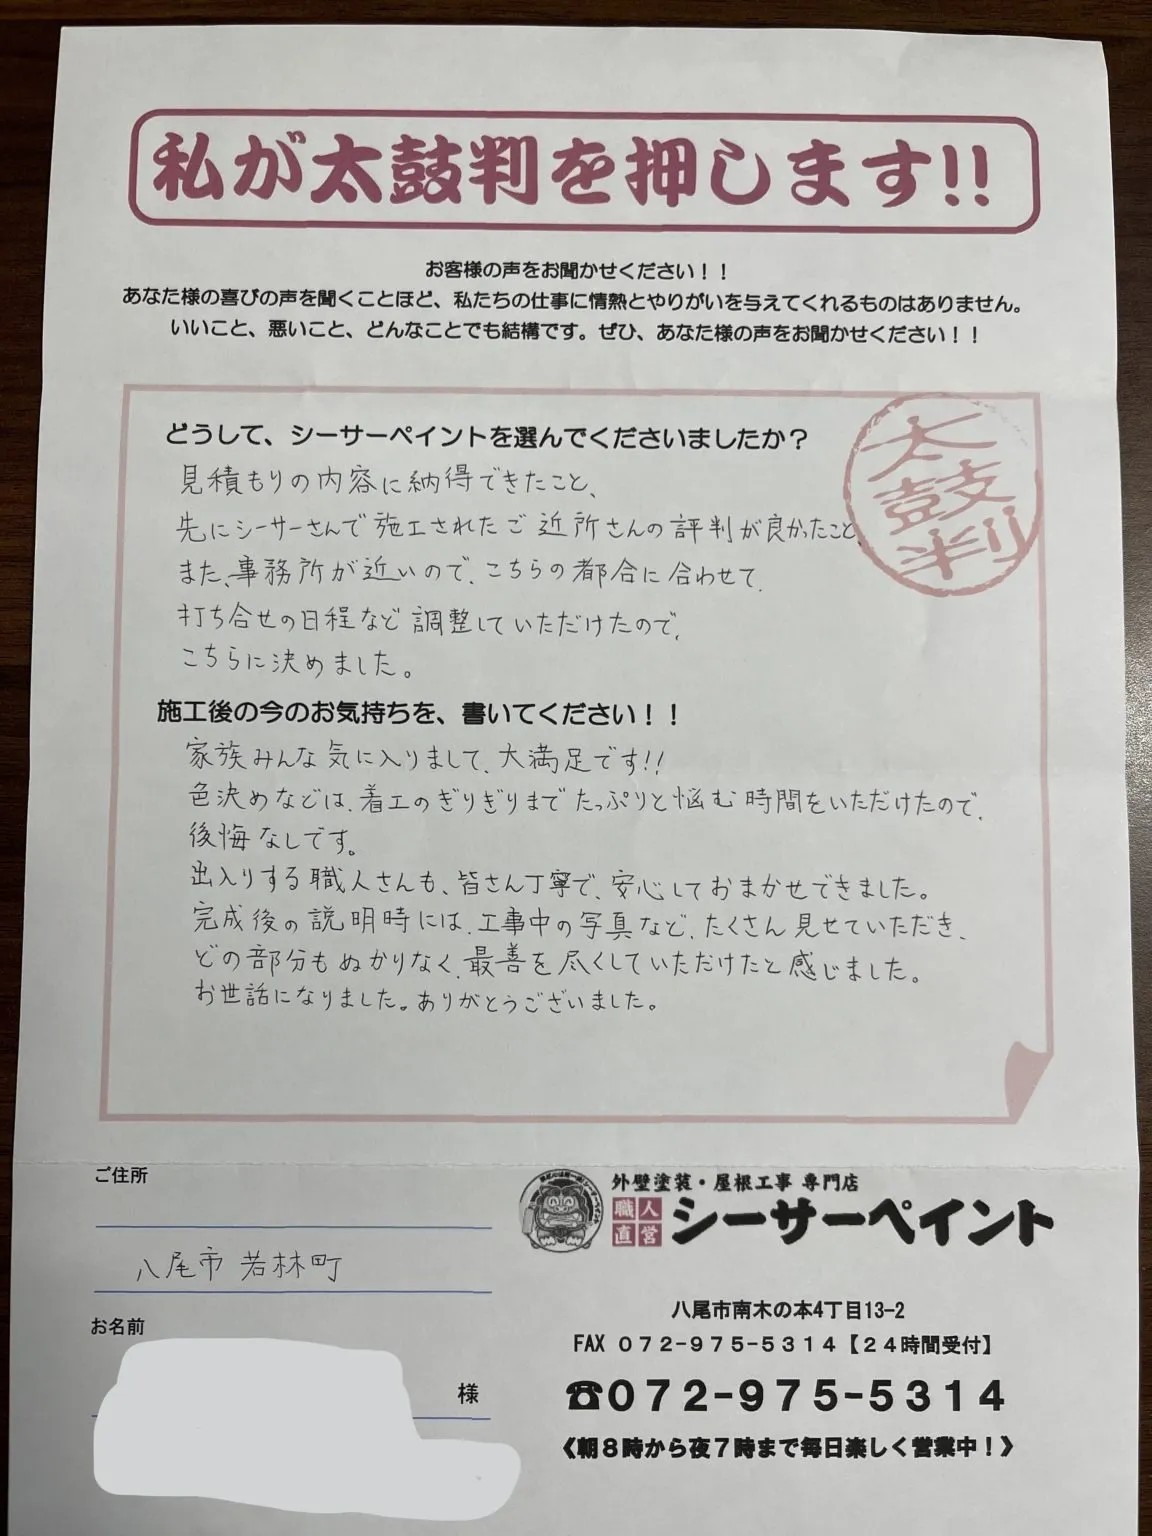 私が太鼓判を押します!!
お客様の声をお聞かせください！！
あなた様の喜びの声を聞くことほど、私たちの仕事に情熱とやりがいを与えてくれるものはありません。
いいこと、悪いこと、どんなことでも結構です。ぜひ、あなた様の声をお聞かせください！！
太鼓判
どうして、シーサーペイントを選んでくださいましたか？
見積もりの内容に納得できたこと、
先にシーサーさんで施工されたご近所さんの評判が良かったこと、
また、事務所が近いので、こちらの都合に合わせて、
打ち合せの日程など調整していただけたので、
こちらに決めました。
施工後の今のお気持ちを、書いてください！！
家族みんな気に入りまして、大満足です!!
色決めなどは、着工のぎりぎりまでたっぷりと悩む時間をいただけたので、
後悔なしです。
出入りする職人さんも、皆さん丁寧で、安心しておまかせできました。
完成後の説明時には、工事中の写真など、たくさん見せていただき、
どの部分もぬかりなく、最善を尽くしていただけたと感じました。
お世話になりました。ありがとうございました。
ご住所
八尾市 若林町
お名前
様
外壁塗装・屋根工事 専門店
職人直営 シーサーペイント
八尾市南木の本4丁目13-2
FAX ０７２-９７５-５３１４【２４時間受付】
☎072-975-5314
《朝８時から夜７時まで毎日楽しく営業中！》